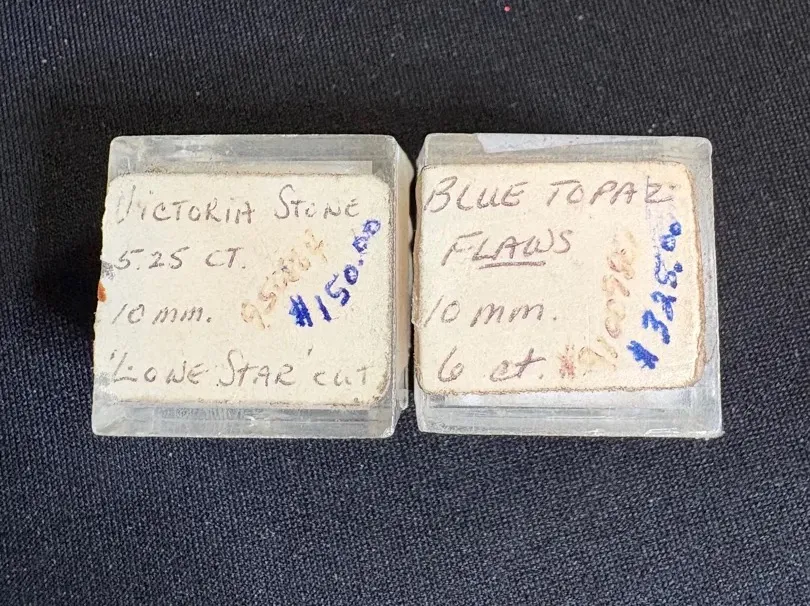 Victoria Stone
5.25 CT.
10 mm.
$150.00
'Lone Star' cut
BLUE TOPAZ
FLAWS
10 mm.
6 ct.
$325.00